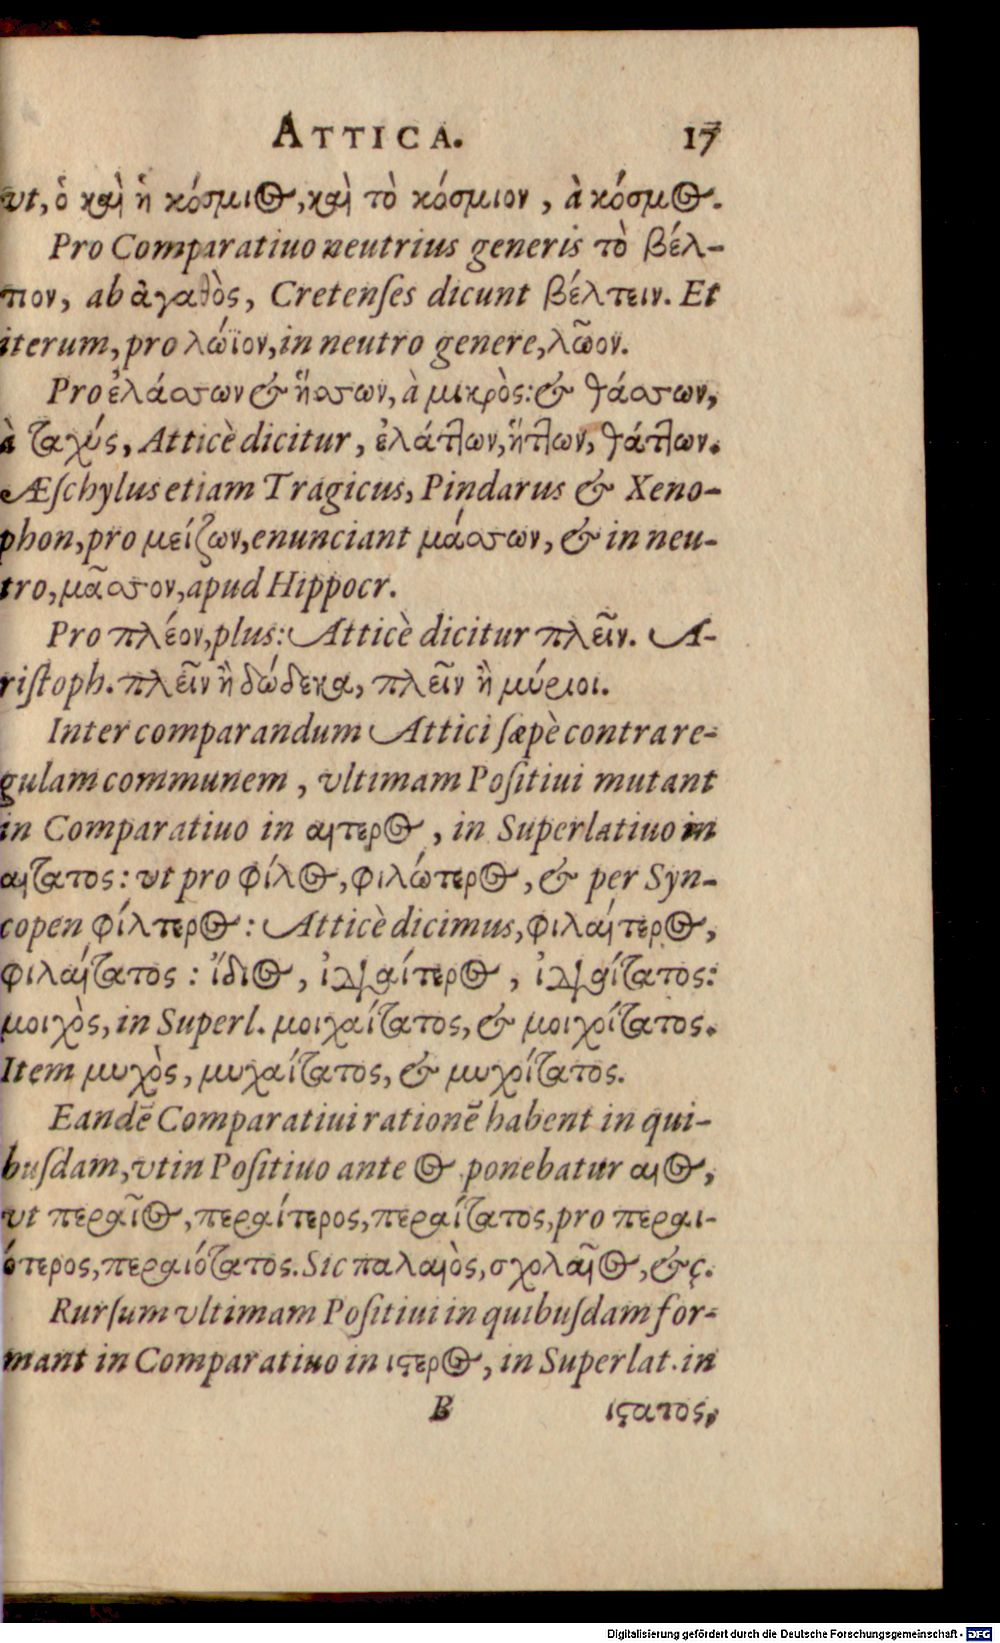 ATTICA. 17
vt, ὁ καὶ ἡ κόσμιος, καὶ τὸ κόσμιον, à κόσμος.
Pro Comparatiuo neutrius generis τὸ βέλ-
τιον, ab ἀγαθὸς, Cretenſes dicunt βέλτειν. Et
iterum, pro λώϊον, in neutro genere, λῶον.
Pro ἐλάσσων & ἥσσων, à μικρὸς: & θάσσων,
à ταχύς, Atticè dicitur, ἐλάττων, ἥττων, θάττων.
Æſchylus etiam Tragicus, Pindarus & Xeno-
phon, pro μείζων, enunciant μάσσων, & in neu-
tro, μᾶσσον, apud Hippocr.
Pro πλέον, plus: Atticè dicitur πλεῖν. A-
riſtoph. πλεῖν ἢ δώδεκα, πλεῖν ἢ μύριοι.
Inter comparandum Attici ſæpè contra re-
gulam communem, vltimam Poſitiui mutant
in Comparatiuo in αιτερος, in Superlatiuo in
αιτατος: vt pro φίλος, φιλώτερος, & per Syn-
copen φίλτερος: Atticè dicimus, φιλαίτερος,
φιλαίτατος: ἴδιος, ἰδιαίτερος, ἰδιαίτατος:
μοιχὸς, in Superl. μοιχαίτατος, & μοιχίτατος.
Item μυχὸς, μυχαίτατος, & μυχίτατος.
Eandē Comparatiui rationē habent in qui-
buſdam, vt in Poſitiuo ante ος ponebatur αιος,
vt περαῖος, περαίτερος, περαίτατος, pro περαι-
ότερος, περαιότατος. Sic παλαιὸς, σχολαῖος, &c.
Rurſum vltimam Poſitiui in quibuſdam for-
mant in Comparatiuo in ιϛερος, in Superlat. in
B ιϛατος,
Digitalisierung gefördert durch die Deutsche Forschungsgemeinschaft - DFG